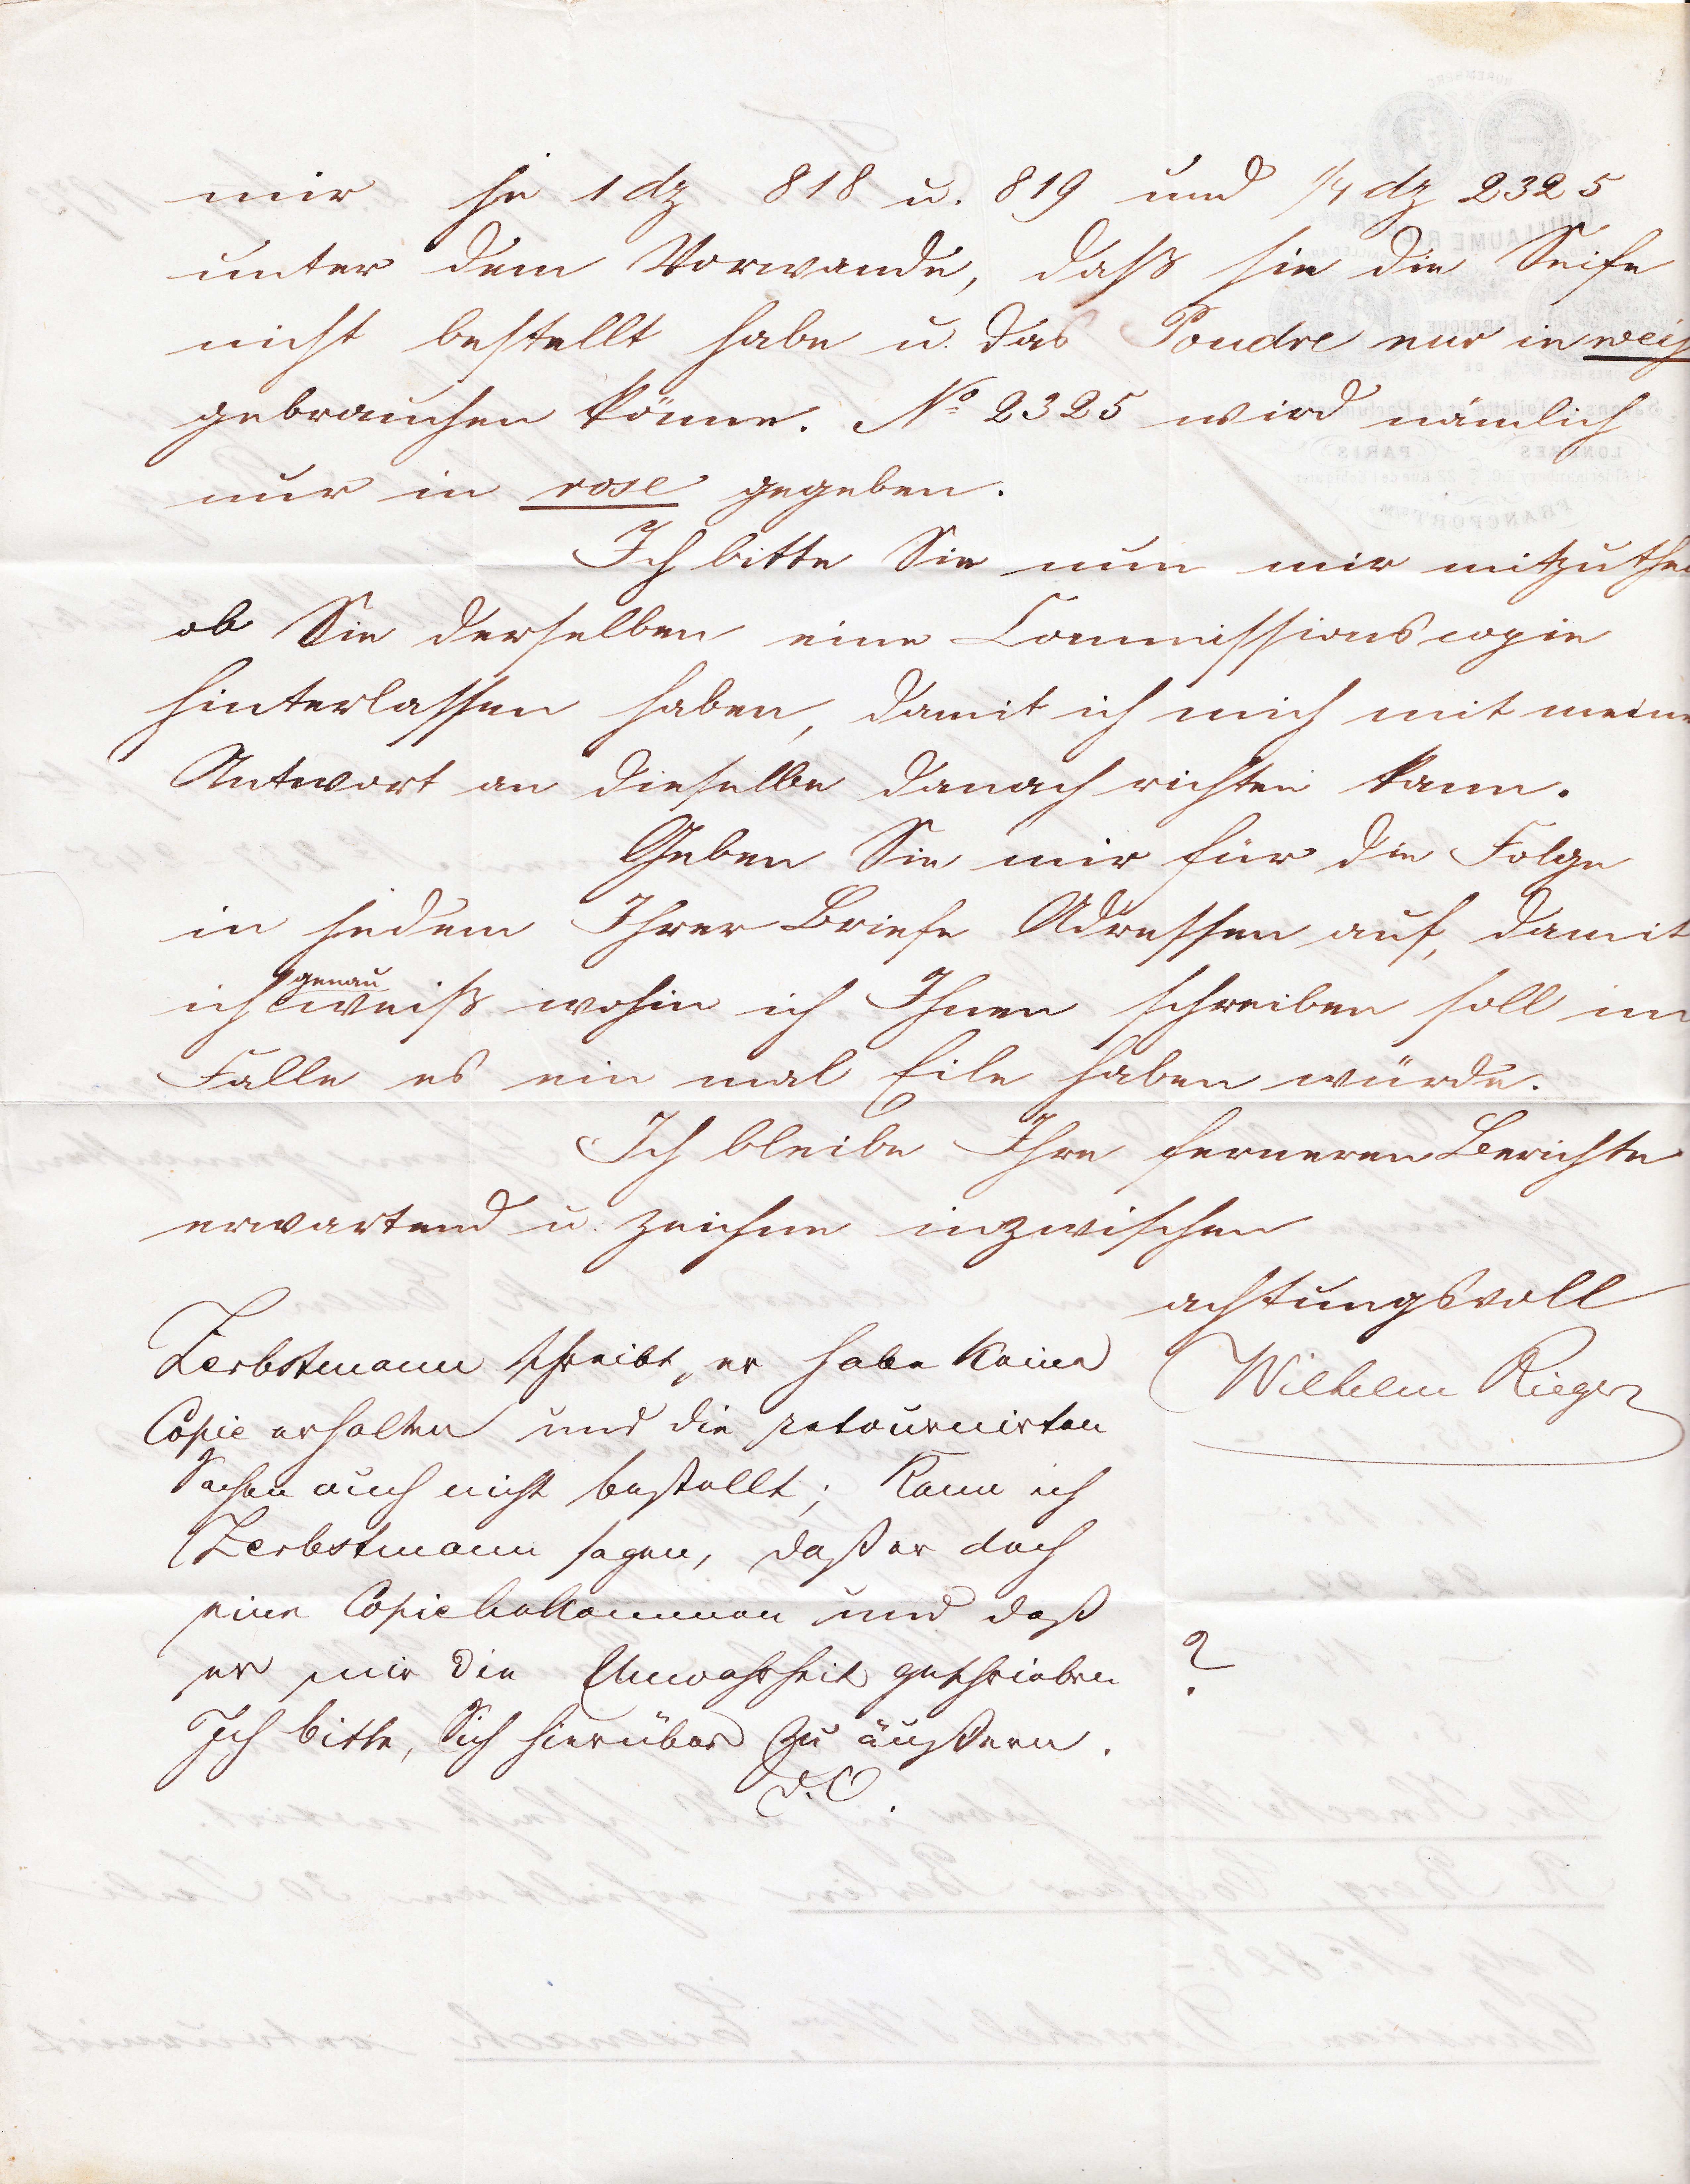 mir je 1 dz 818 u. 819 und 1/4 dz 2325
unter dem Vorwande, daß sie die Seife
nicht bestellt habe u. das Poudre nur in weiß
gebrauchen könne. No 2325 wird nämlich
nur in rose gegeben.
Ich bitte Sie nun mir mitzuthei
ob Sie derselben eine Commissionscopie
hinterlassen haben, damit ich mich mit meine
Antwort an dieselbe danach richten kann.
Geben Sie mir für die Folge
in jedem Ihrer Briefe Adressen auf, damit
genau
ich weiß wohin ich Ihnen schreiben soll im
Falle es ein mal Eile haben würde.
Ich bleibe Ihre ferneren Berichte
erwartend u. zeichne inzwischen
achtungsvoll
Wilhelm Rieger
Zerbstmann schreibt, er habe keine
Copie erhalten und die retournirten
Sachen auch nicht bestellt; Kann ich
Zerbstmann sagen, daß er doch
eine Copie bekommen und daß
er mir die Unwahrheit geschrieben ?
Ich bitte, Sich hierüber zu äußern.
D.O.